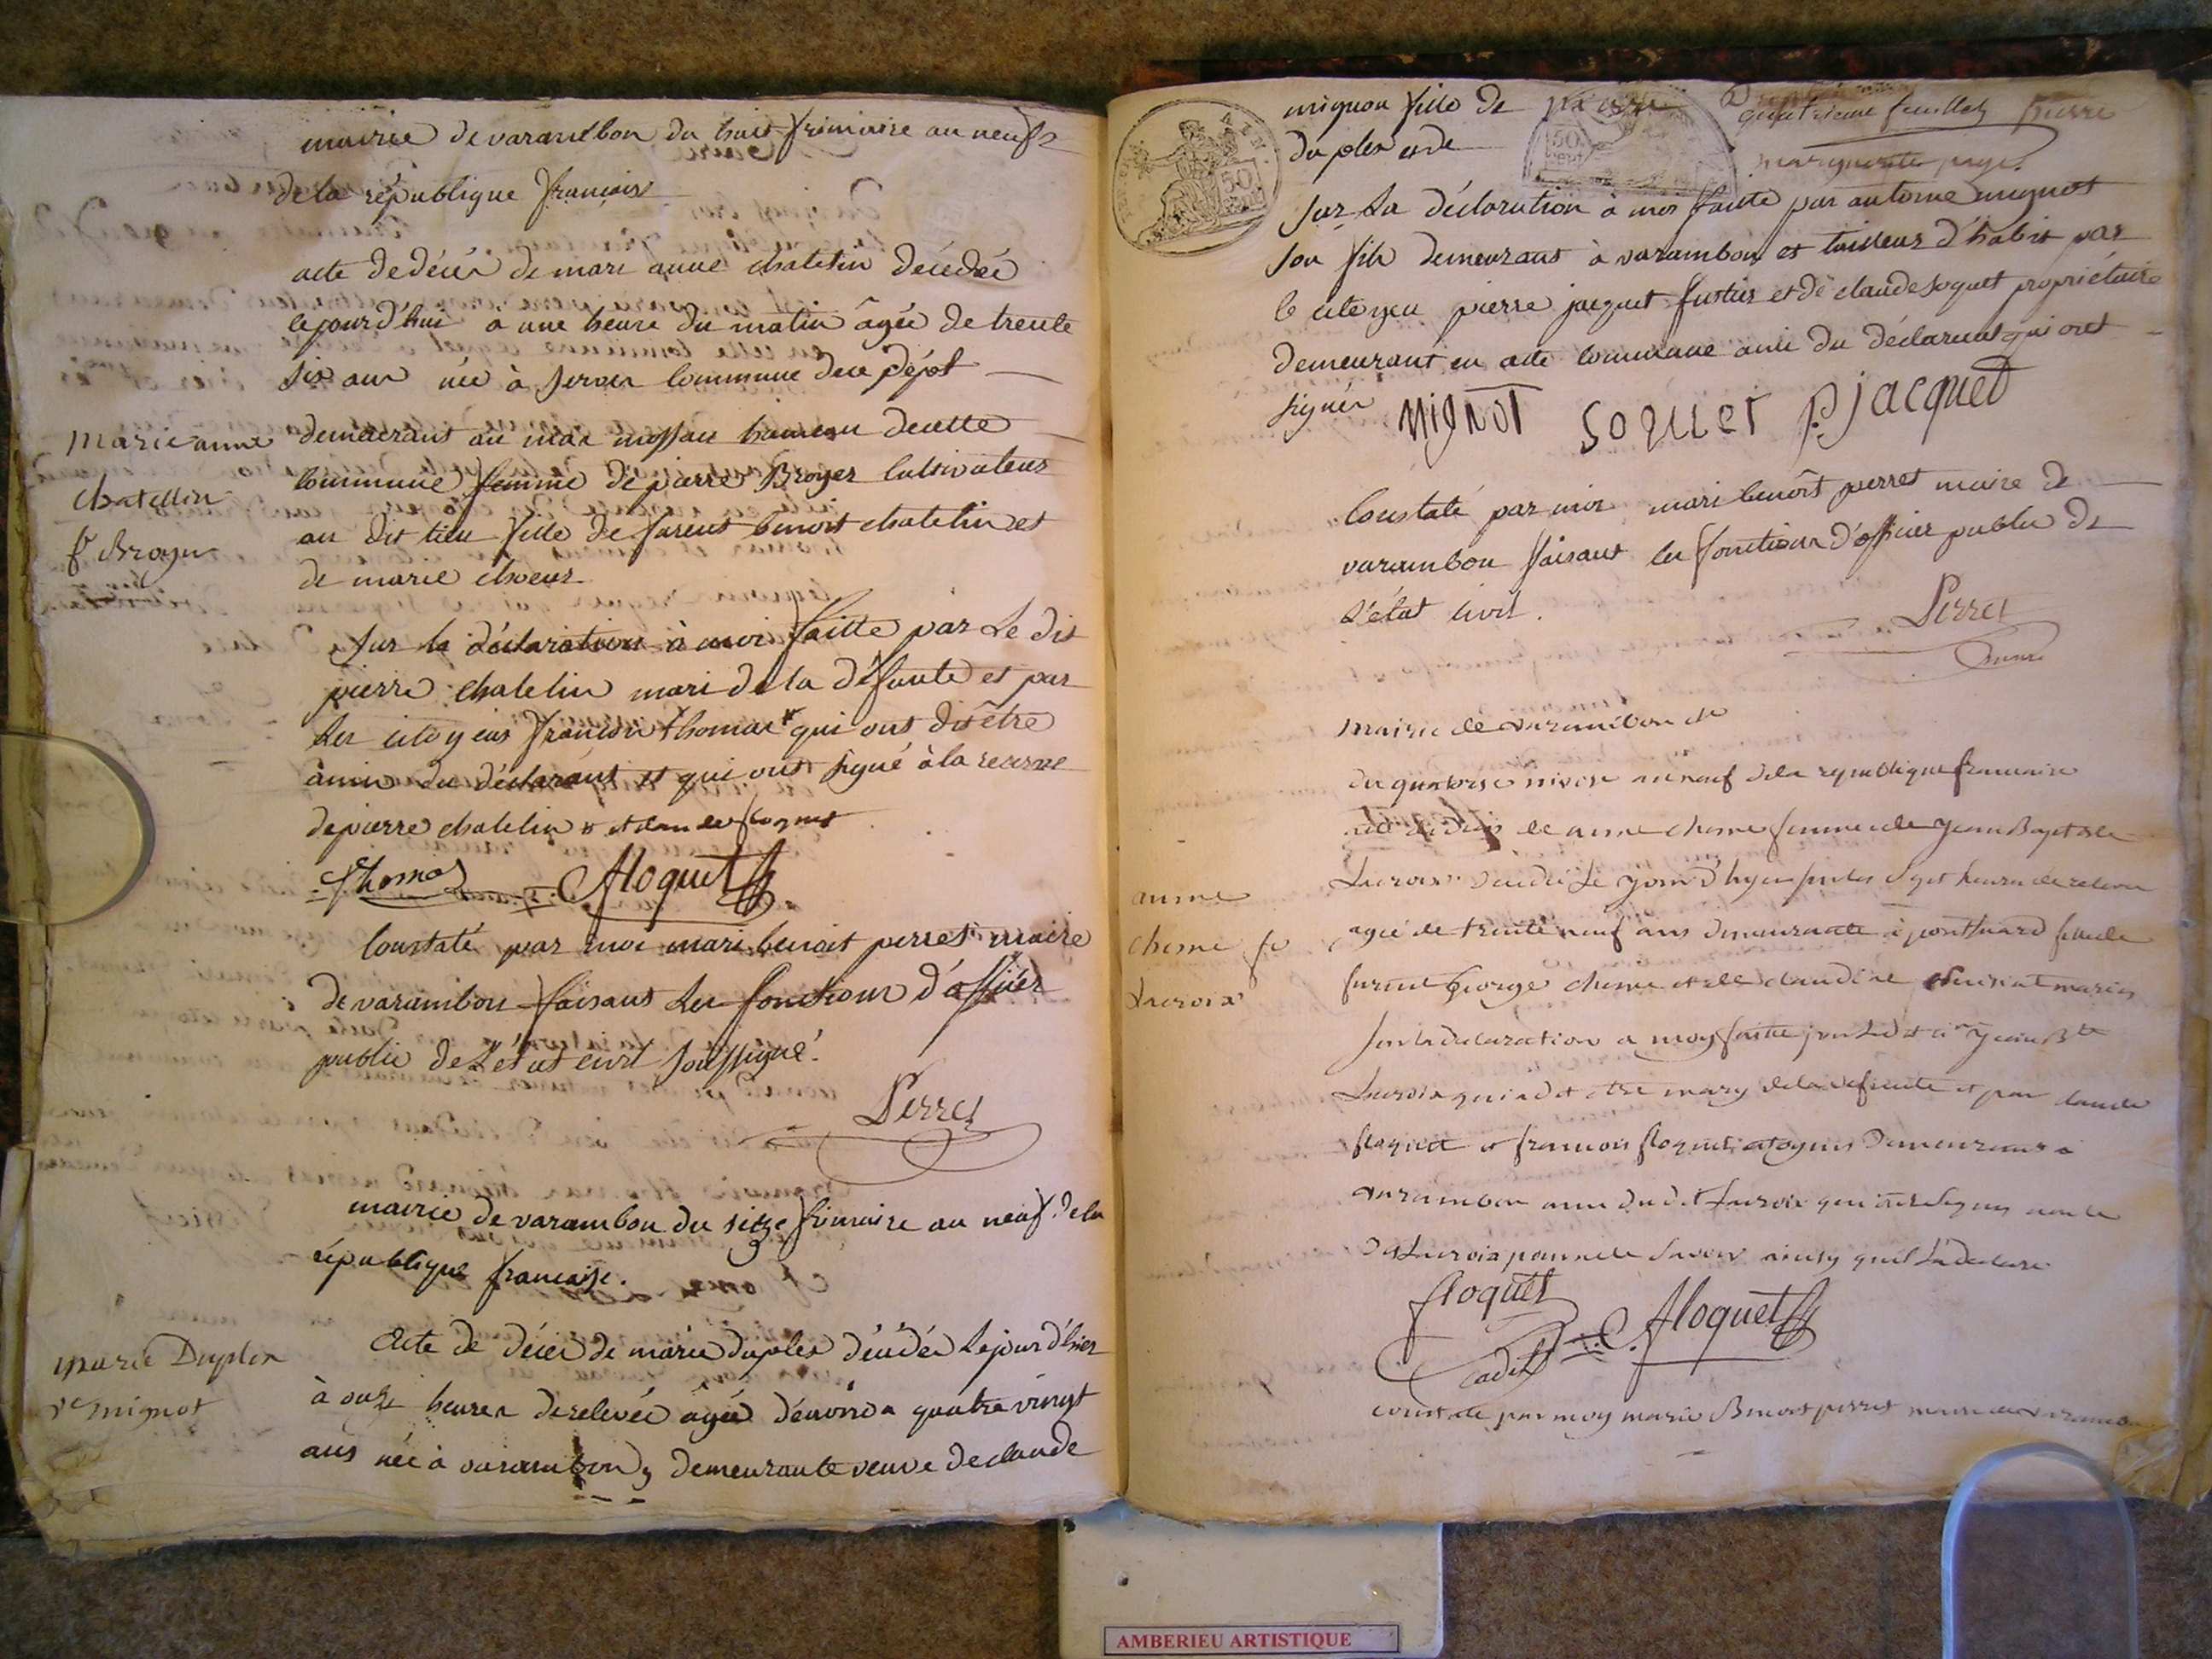 mairie de varambon du huit frimaire an neuf
de la république françoise
acte de décès de mari anne chatelin décédée
le jourd'hui a une heure du matin âgée de trente
six ans née à commune de
marie anne
chatellin
fe Broyer
demeurant au mas hameau de cette
commune femme de pierre Broyer cultivateur
au dit lieu fille de benoit chatelin et
de marie
sur la déclaration à moi faitte par le dit
pierre chatelin mari de la défunte et par
les citoyens françois thomas qui ont dit être
amis du déclarant et qui ont signé à la reserve
de pierre chatelin et claude floquet
f thomas C. floquet
Constaté par moi mari benoit perret maire
de varambon faisant les fonctions d'officier
public de l'état civil soussigné.
Perret
mairie de varambon du seize frimaire an neuf de la
république française.
Marie Duplex
ve mignot
Acte de décès de marie duplex décédée le jour d'hier
à onze heures de relevée âgée d'environ quatre vingt
ans née à varambon y demeurante veuve de claude
quatrieme feuillet
mignon fille de pierre
duplex et de marguerite page.
50
sur la déclaration à moi faite par antoine mignot
son fils demeurant à varambon et tailleur d'habit par
le citoyen pierre jacquet et de claude soquet propriétaire
demeurant en cette commune amis du déclarant qui ont
signés
Mignot soquet P. jacquet
Constaté par moi mari benoit perret maire de
varambon faisant les fonctions d'officier public de
l'état civil.
Perret
maire
mairie de varambon
du quatorse nivose an neuf de la republique francaise
anne
cherne fe
Lacroix
acte de deces de anne cherne femme de jean Baptiste
Lacroix décédée le jour d'hyer sur les sept heures de relevée
agée de trente neuf ans demeurante à fille de
George cherne et de claudine
sur la declaration a moy faitte par ledit jean Bte
Lacroix qui a dit etre mary de la defunte et par claude
floquet et francois floquet citoyens demeurant a
varambon amis du dit Lacroix qui ont signés non le
dit Lacroix pour ne le savoir ainsy qu'il l'a declaré
floquet C. floquet
Cadet
constaté par moy marie Benoit perret maire de varambon
AMBERIEU ARTISTIQUE